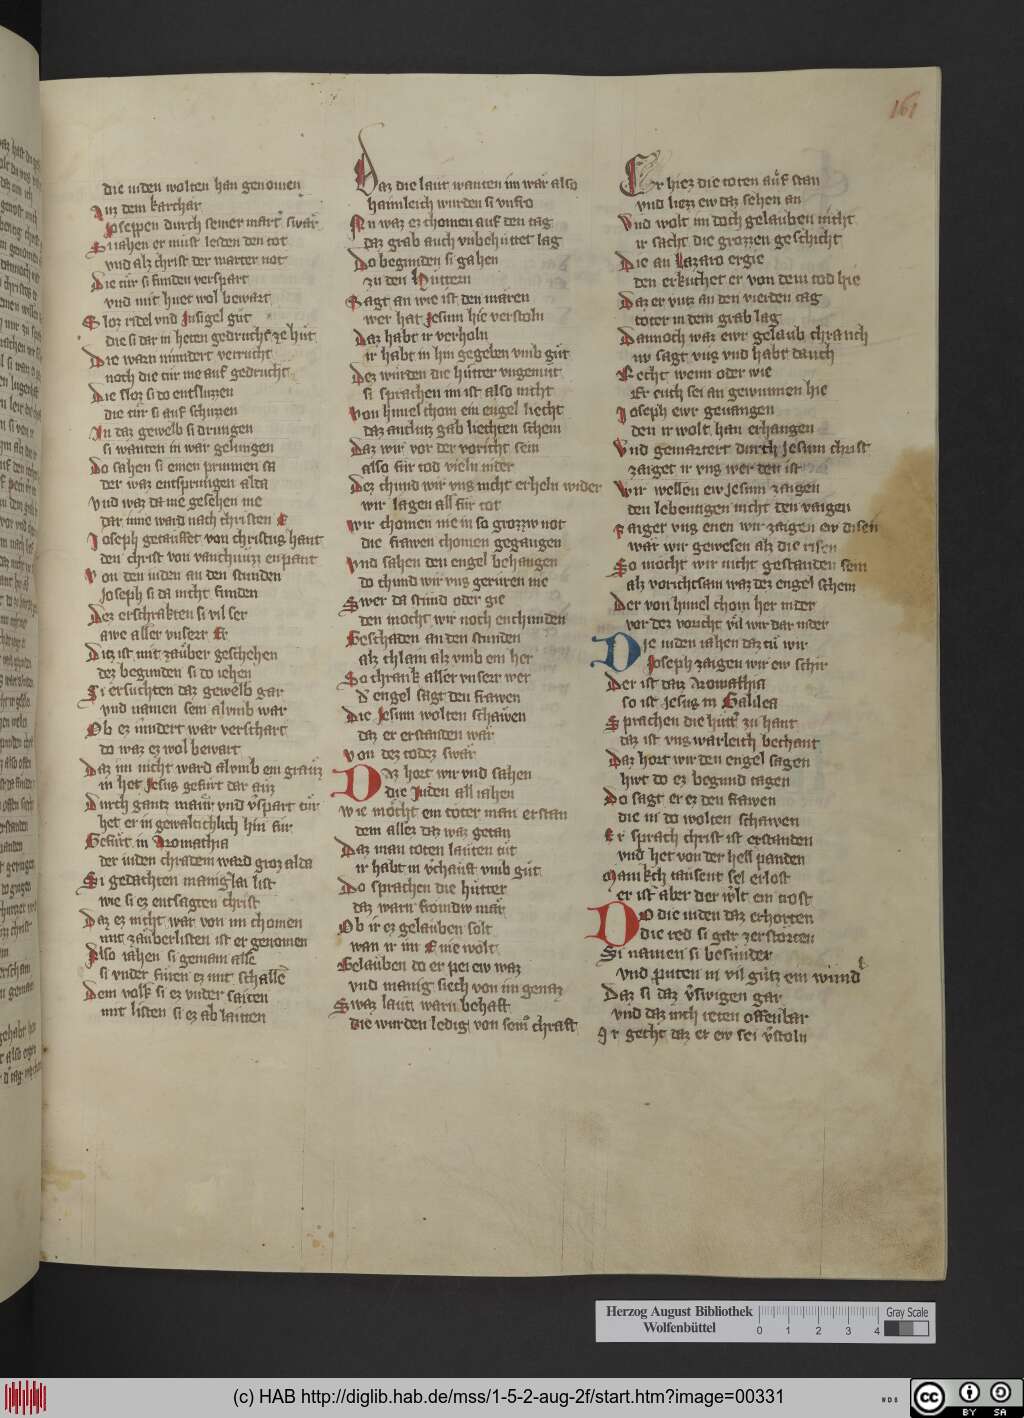 161
die iuden wolten han genomen
Auz dem karchar
Joseppen durch seiner mart swar
Si iahen er must leiden den tot
vnd alz christ der marter not
Die tür si funden verspart
vnd mit huet wol bewart
Sloz ridel vnd Jnsigel gut
die si dar in heten gedrucht ze hut
Die warn nindert verrucht
noch die tür nie auf gedrucht
Die sloz si do entsluzzen
die tür si auf schuzzen
Jn daz gewelb si drungen
si wanten in war gelungen
Do sahen si einen prunnen sa
der waz entsprungen alda
vnd waz da nie gesehen me
dar inne ward nach christen E
Joseph getauffet von christus hant
den christ von vanchnüzz enpant
Von den iuden an den stunden
Joseph si da nicht funden
Dez erschrakten si vil ser
awe aller vnserr Er
Ditz ist mit zauber geschehen
dez begunden si do iehen
Si ersuchten daz gewelb gar
vnd namen sein alumb war
Ob ez indert war verschart
do waz ez wol bewart
Daz im nicht ward alumb ein grauz
in het Jesus gefurt dar auz
Durch gantz maur vnd v̄spart tür
het er in gewaltichlich hin für
Gefurt in Aromathia
der iuden chradem ward groz alda
Si gedachten manig lai list
wie si ez entsagten christ
Daz ez nicht war von im chomen
mit zauberlisten ist er genomen
Also iahen si gemain alle
si vnder furen ez mit schalle
Dem volk si ez vnder saiten
mit listen si ez ab laiten
Daz die laut wanten im war also
haimleich wurden si vnfro
Nu waz ez chomen auf den tag
daz grab auch vnbehüttet lag
Do begunden si gahen
zu den Huttern
Sagt an wie ist den mären
wer hat Jesum hie verstoln
Daz habt ir verholn
ir habt in hin gegeben vmb gut
Dez wurden die hütter vngemut
si sprachen im ist also nicht
Von himel chom ein engel liecht
daz antlutz gab liechten schein
Daz wir vor der voricht sein
also für tod vieln nider
Dez chund wir vns nicht erholn wider
wir lagen all für tot
Wir chomen nie in so grozzw not
die frawen chomen gegangen
Vnd sahen den engel behangen
do chund wir vns gerüren nie
Swer da stund oder gie
den mocht wir noch enchunden
Geschaden an den stunden
alz chlain alz vmb ein her
So chrank aller vnserr wer
d' engel sagt den frawen
Die Jesum wolten schawen
daz er erstanden war
Von dez todez swar
Daz hort wir vnd sahen
die Juden all iahen
Wie mocht ein toter man erstan
dem allez daz waz getan
Daz man toten lauten tut
ir habt in v̄chauft vmb gut
Do sprachen die hütter
daz warn fromdw mar
Ob ir ez gelauben solt
wan ir im E nie wolt
Gelauben do er pei ew waz
vnd manig siech von im genaz
Swaz laut warn behaft
die wurden ledig von seiner chraft
Er hiez die toten auf stan
vnd liezz ew daz sehen an
Vnd wolt im doch gelauben nicht
ir sacht die grozzen geschicht
Die an Lazaro ergie
den erkuchet er von dem tod hie
Daz er vntz an den vierden tag
toter in dem grab lag
Dannoch waz ewr gelaub chranch
nu sagt vns vnd habt danch
Recht wenn oder wie
Er euch sei an gewunnen hie
Joseph ewr geuangen
den ir wolt han erhangen
Vnd gemartert durch Jesum christ
zaiget ir vns wer den ist
Wir wellen ew jesum zaigen
den lebentigen nicht den vaigen
Zaiget vns enen wir zaigen ew disen
war wir gewesen alz die risen
So mocht wir nicht gestanden sein
alz vorichtsam waz dez engel schein
Der von himel chom her nider
vor dez voricht viel wir dar nider
Die iuden iahen daz tu wir
Joseph zaigen wir ew schir
Der ist datz Aromathia
so ist jesus in Galilea
Sprachen die hütter zu hant
daz ist vns warleich bechant
Daz hort wir den engel sagen
hiut do ez begund tagen
Do sagt er ez den frawen
die in do wolten schawen
Er sprach christ ist erstanden
vnd het von der hell panden
Manikch tausent sel erlost
er ist aber der w̄lt ein trost
Do die iuden daz erhorten
die red si gar zerstorten
Si namen si besunder
vnd puten in vil gutz ein wunder
Daz si daz v̄swigen gar
vnd daz nich teten offenbar
Ir gecht daz er ew sei v̄stoln
Herzog August Bibliothek
Wolfenbüttel
0 1 2 3 4
Gray Scale
(c) HAB http://diglib.hab.de/mss/1-5-2-aug-2f/start.htm?image=00331
cc BY SA